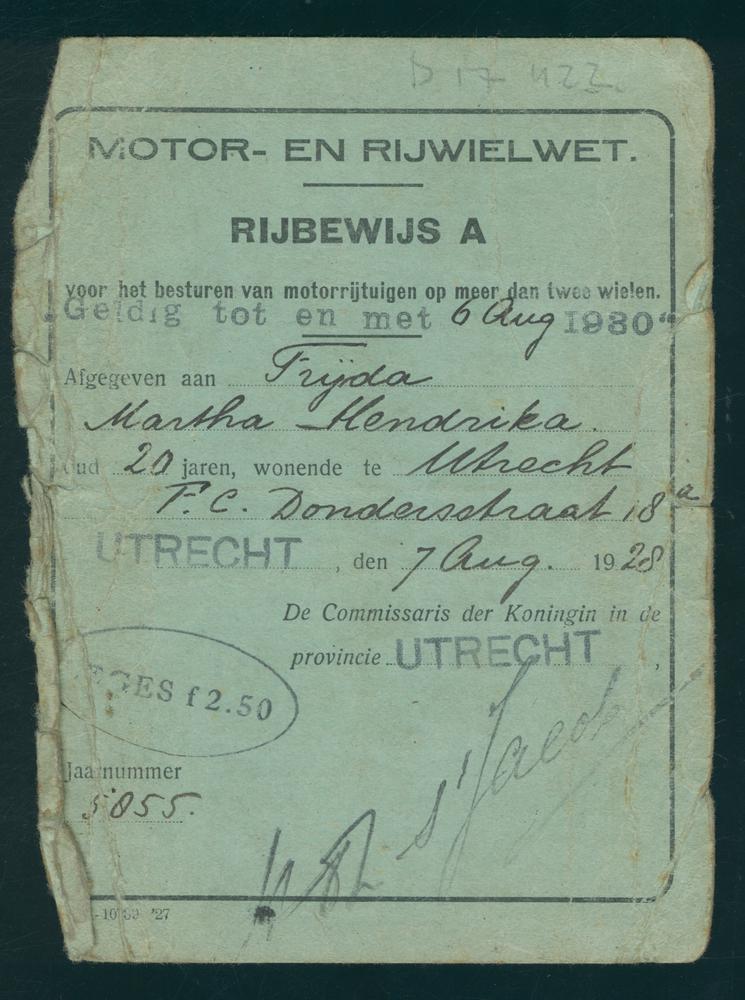 D 17 422.
MOTOR- EN RIJWIELWET.
RIJBEWIJS A
voor het besturen van motorrijtuigen op meer dan twee wielen.
"Geldig tot en met 6 Aug 1930"
Afgegeven aan Frijda
Martha Hendrika.
oud 20 jaren, wonende te Utrecht
F. C. Dondersstraat 18a
UTRECHT, den 7 Aug. 1928
De Commissaris der Koningin in de
provincie UTRECHT,
LEGES f 2.50
s'Jacob
Jaarnummer
5855.
'27